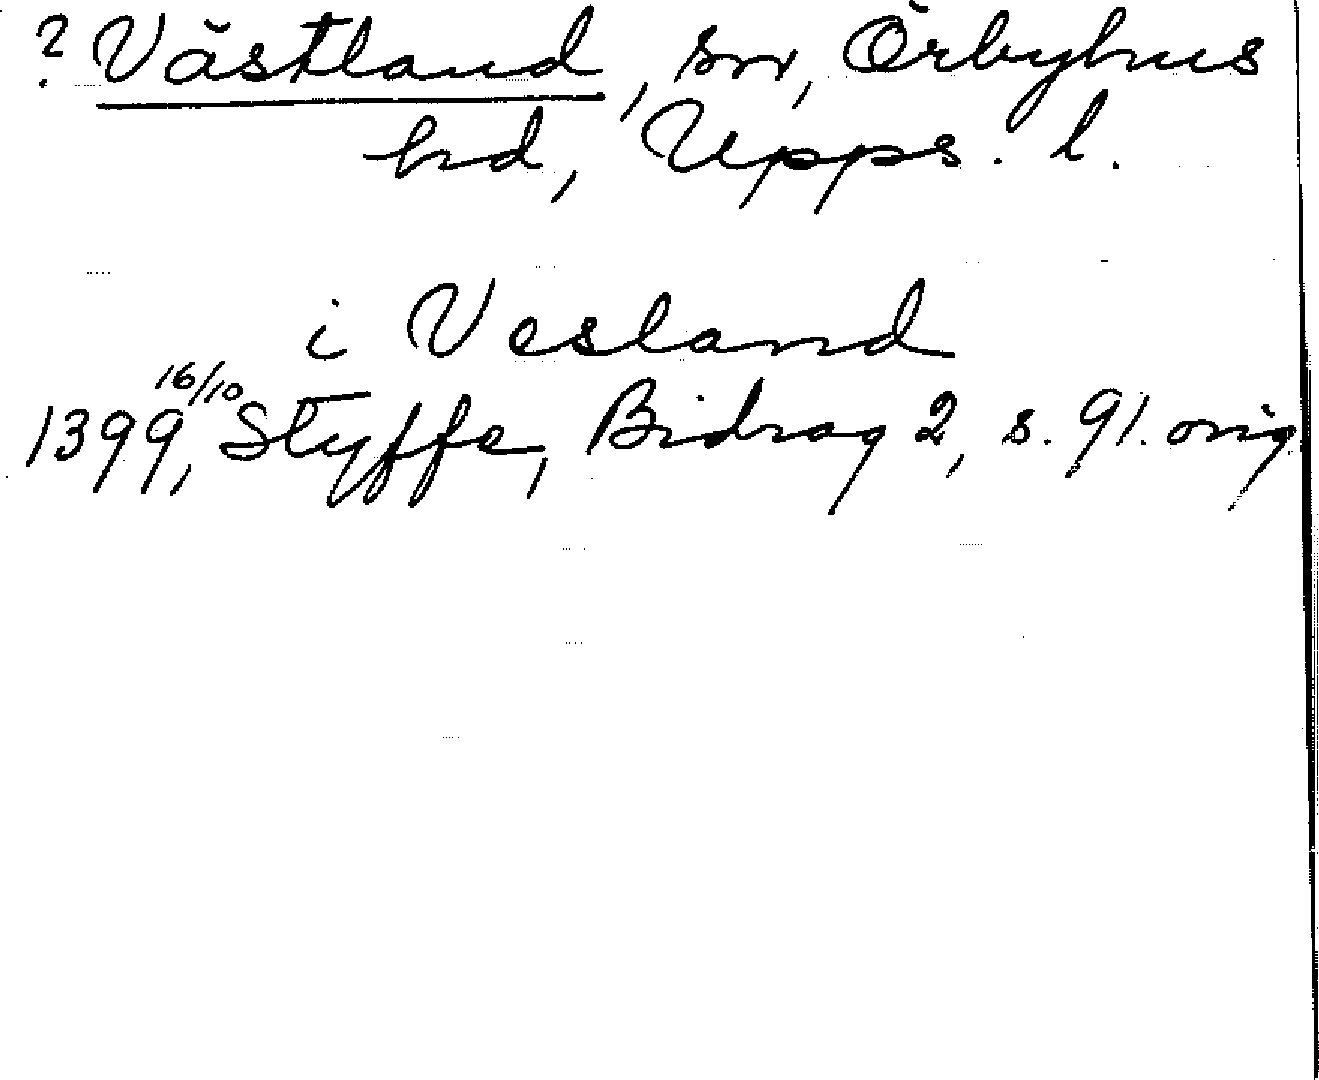 ? Västland, sn, Örbyhus
hd, Upps. l.
i Vesland
1399 16/10, Styffe, Bidrag 2, s. 91. orig.